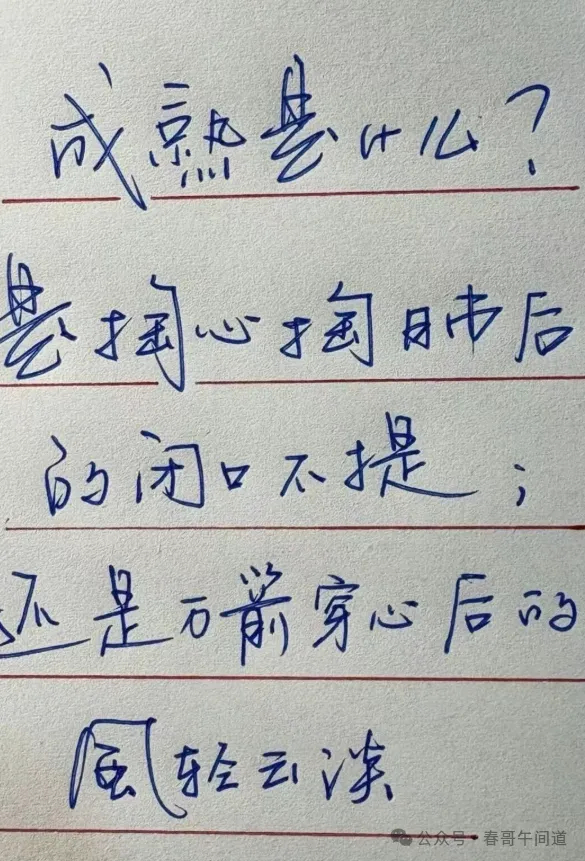 成熟是什么?
是掏心掏肺后
的闭口不提;
还是万箭穿心后的
風轻云淡
公众号·春哥午间道